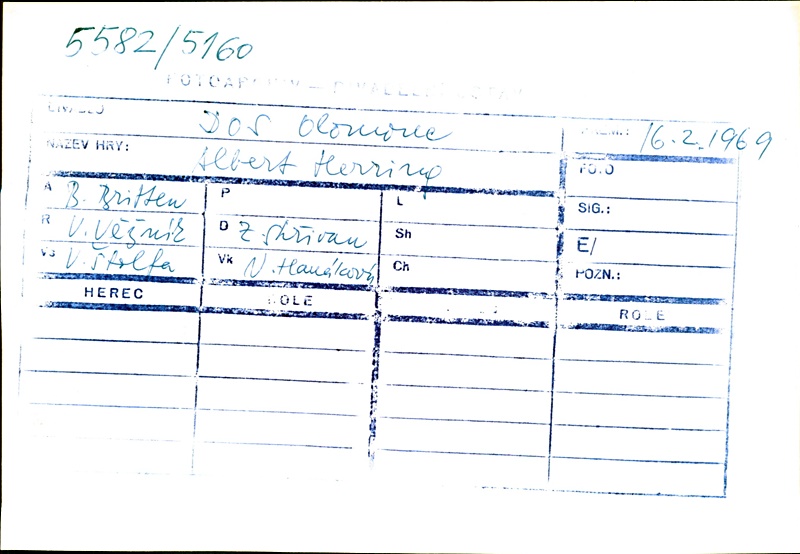 5582/5160
FOTOARCHIV — DIVADELNÍ ÚSTAV
DIVADLO DOS Olomouc
PREM.: 16.2.1969
NÁZEV HRY: Albert Herring
FOTO
A B. Britten
P
L
SIG.:
R V. Věžník
D Z. Skřivan
Sh
E/
Vs V. Štolfa
Vk N. Hanáková
Ch
POZN.:
HEREC ROLE ROLE